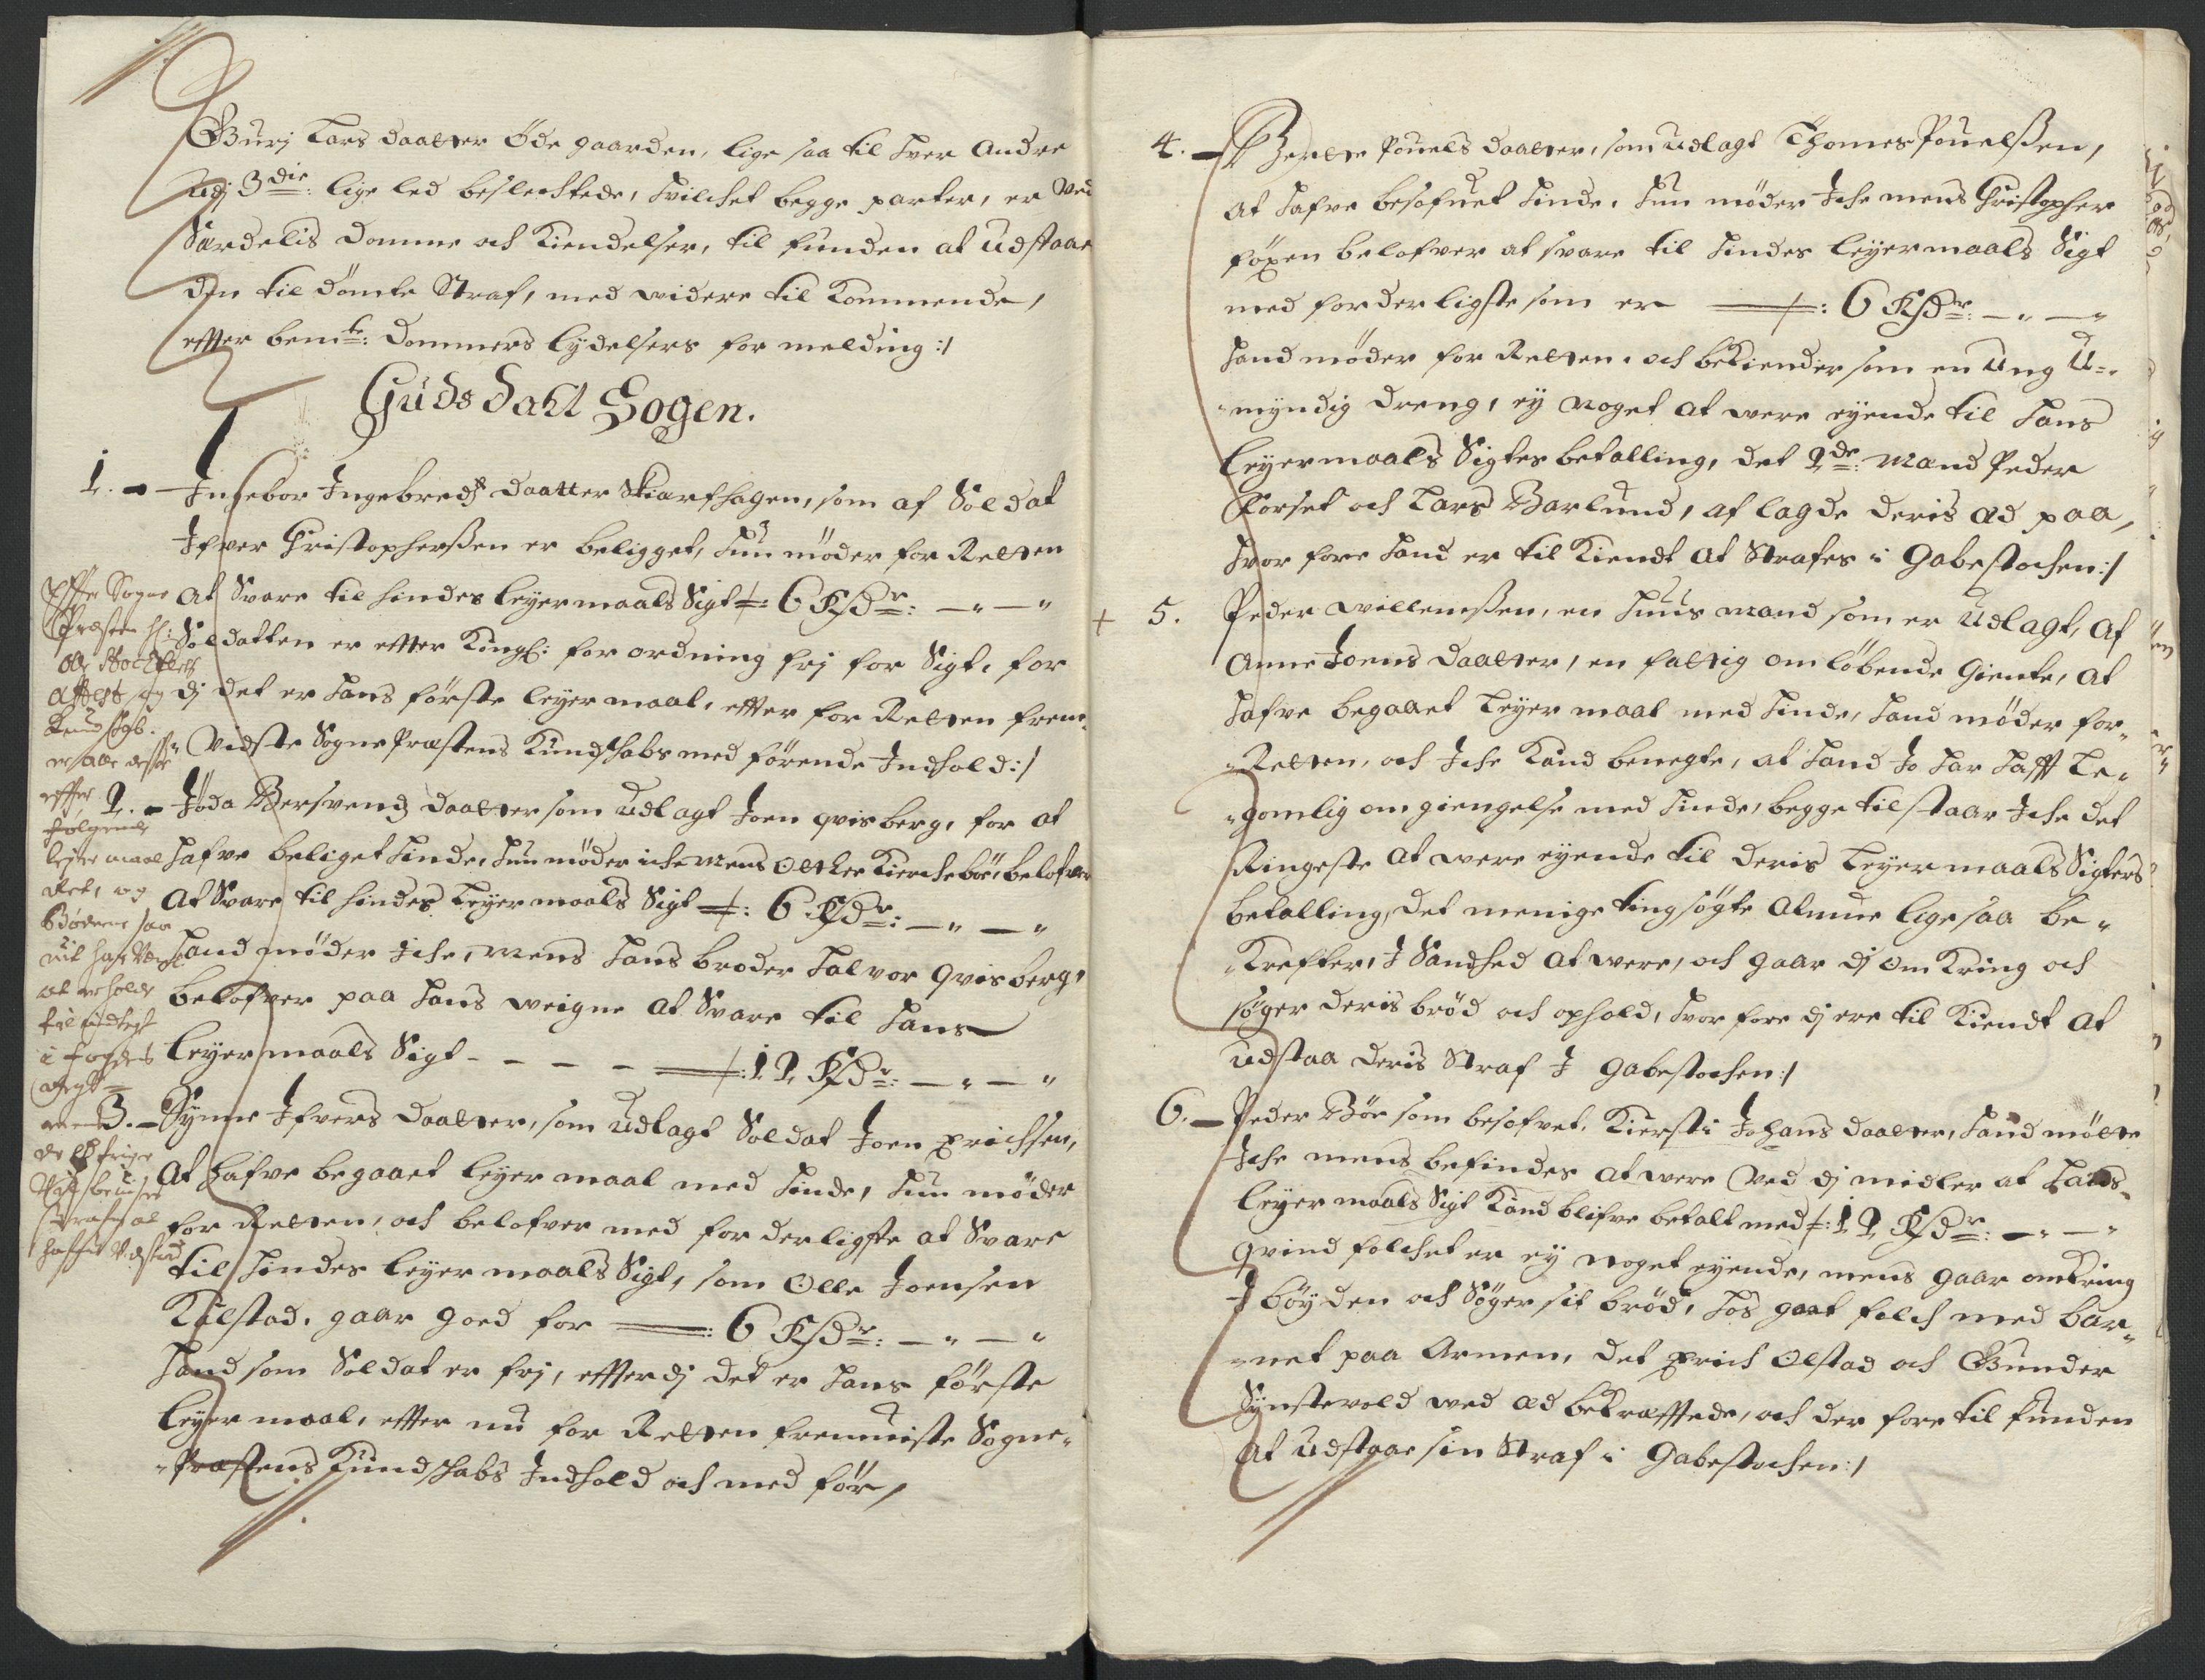 Gurj Lars daatter Öde gaarden, lige saa til hver Andre
udj 3die: lige led beslechtede, hvilchet begge parter, er ved
Särdelis domme och Kiendelser, til funden at udstaae
den til dömte Straf, med widere til Kommende,
efter bemte: dommers lydelsers for melding :/
Guds dahl Sogen.
1. - Ingebor Ingebreds daatter Skiærfhagen, som af Soldat
Ifver Christopherßen er beligget, hun möder for Retten
At Svare til hindes leyermaals Sigt 6 Rdr: - " - "
Soldatten er efter Kongl: for ordning frj for Sigt, for
dj det er hans förste leyermaal, efter for Retten frem¬
vidste Sogne Præstens Kundschabs med förende Indhold :/
2. - Jöda Bersvends daatter som udlagt Joen qvisberg, for at
hafve beliget hinde, hun möder iche mens Olther Kircheböe, belofver
At Svare til hindes Leyermaals Sigt 6 Rdr: - " - "
Hand möder Iche, mens hans broder Halvor Qvisberg,
belofver paa hans weigne at Svare til hans
leyermaals Sigt - - - - 12 Rdr: - " - "
3. - Synne Ifvers daatter, som udlagt Soldat Joen Erichsen,
At hafve begaaet leyermaal med hinde, hun möder
for Retten, och belofver med forderligste at Svare
til hindes leyermaals Sigt, som Olle Joensen
Kalstad, gaar goed for 6 Rdr: - " - "
Hand som Soldat er frj, effterdj det er hans förste
leyermaal, efter nu for Retten fremviste Sogne¬
Præstens Kundschabs Indhold och med för/
Effter Sogne
Præsten H:
Attest og
er alle disse
effter
følgende
leyermaal
Ret, og
Bøderne saa
at erholde
i fogdens
4. - Berette Pouels daatter, som udlagt Thomes Pouelßen,
At hafve besofuet hinde, hun möder Iche mens Christopher
föxen belofver at svare til hindes leyermaals Sigt
med forderligste som er 6 Rdr: - " - "
Hand möder for Retten, och bekiender som en Ung U=
myndig dreng, ey noget at were eyende til hans
leyermaals Sigtes betalling, det 2de: Mand Peder
Forset och Lars Barlund, aflagde deris æd paa,
hvor fore hand er til Kiendt at Strafes i Gabestochen :/
+ 5. Peder Willemsßen, en huus mand som er udlagt, Af
Anne Joens daatter, en fattig omløbende Giente, At
hafve begaaet Leyermaal med hinde, hand möder for¬
Retten, och Iche Kand benegte, at hand Jo har hafft Le¬
gomlig omgiengelse med hinde, begge tilstaar Iche det
Ringeste at were eyende til deris Leyermaals Sigters
betalling, det menige tingsögte Almue lige saa be¬
Krefter, I Sandhed at were, och gaar dj om Kring och
söger deris bröd och ophold, hvor fore dj ere til Kiendt at
udstaa deris Straf I Gabestochen :/
6. - Peder Böe som besofvet, Kiersti Johans daatter, hand mötte
Iche mens befindes at were ved dj midler at hans
leyermaals Sigt Kand blifve betalt med 12 Rdr: - " - "
Qvind folchet er ey noget eyende, mens gaar omkring
I böyden och Söger sit bröd, hos gaat folch med bar¬
net paa Armen, det Erich Olstad och Gunder
Synstevold ved æd bekræfftede, och der fore til funden
At udstaae sin Straf i Gabestochen :/